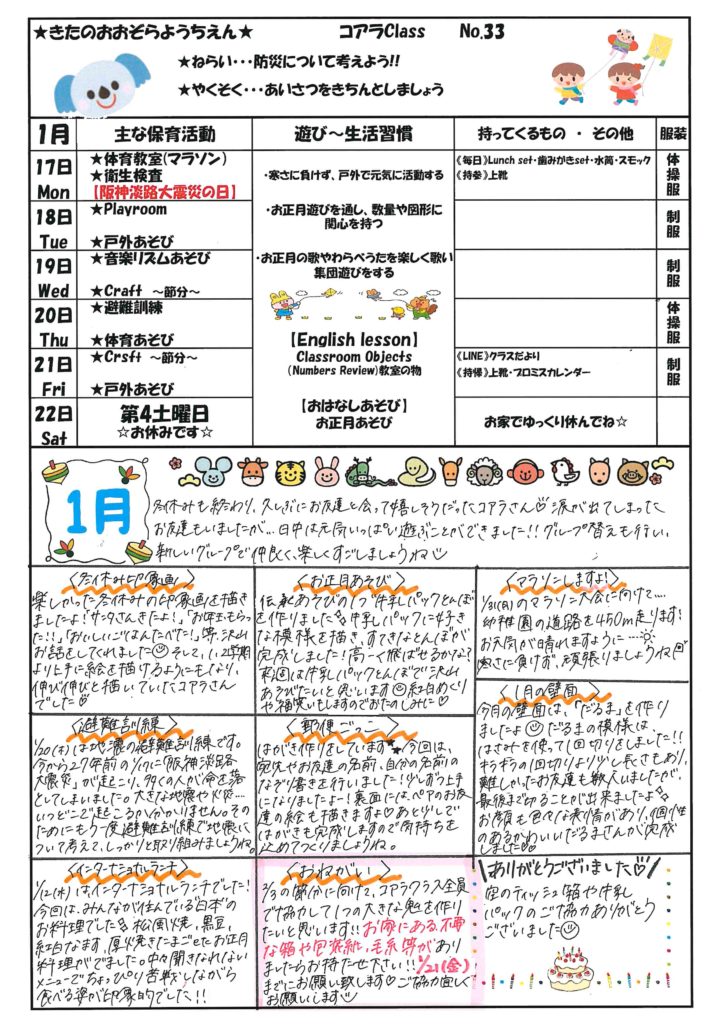 ★きたのおおぞらようちえん★　コアラClass　No.33
★ねらい・・・防災について考えよう!!
★やくそく・・・あいさつをきちんとしましょう
1月　主な保育活動　遊び～生活習慣　持ってくるもの ・ その他　服装
17日 Mon
★体育教室(マラソン)
★衛生検査
【阪神淡路大震災の日】
《毎日》Lunch set・歯みがきset・水筒・スモック
《持参》上靴
体操服
18日 Tue
★Playroom
★戸外あそび
制服
19日 Wed
★音楽リズムあそび
★Craft ～節分～
制服
20日 Thu
★避難訓練
★体育あそび
体操服
21日 Fri
★Crsft ～節分～
★戸外あそび
《LINE》クラスだより
《持帰》上靴・プロミスカレンダー
制服
22日 Sat
第4土曜日
☆お休みです☆
お家でゆっくり休んでね☆
・寒さに負けず、戸外で元気に活動する
・お正月遊びを通し、数量や図形に
関心を持つ
・お正月の歌やわらべうたを楽しく歌い
集団遊びをする
【English lesson】
Classroom Objects
(Numbers Review)教室の物
【おはなしあそび】
お正月あそび
1月
冬休みも終わり、久しぶりにお友達と会って嬉しそうだったコアラさん♡涙が出てしまった
お友達もいましたが…日中は元気いっぱい遊ぶことができました!!グループ替えも行い、
新しいグループで仲良く、楽しくすごしましょうね♡
〈冬休み印象画〉
楽しかった冬休みの印象画を描き
ましたよ!「サンタさんきたよ!」「お年玉もらっ
た!!」「おいしいごはんたべた!」等、沢山
お話をしてくれました☺そして、1、2学期
より上手に絵を描けるようにもなり、
伸び伸びと描いていたコアラさん
でした♡
〈お正月あそび〉
伝承あそびの1つ"牛乳パックとんぼ"
を作りました♪牛乳パックに好き
な模様を描き、すてきなとんぼが
完成しました!高ーく飛ばせるかな?
来週は牛乳パックとんぼで沢山
あそびたいと思います☺絵合めくり
や福笑いもしますのでおたのしみに♡
〈マラソンしますよ!〉
1/31(月)のマラソン大会に向けて…
幼稚園の道路を450m走ります!
お天気が晴れますように…☀
寒さに負けず、頑張りましょうね
〈1月の壁面〉
今月の壁面は、「だるま」を作り
ましたよ☺だるまの模様は、
はさみを使って1回切りをしました!!
ギラギラの1回切りより少し長さもあり、
難しかったお友達も数人いましたが、
最後まで切ることが出来ましたよ✧
お顔も色々な表情があり、個性
のあるかわいいだるまさんが完成
しました♡
〈避難訓練〉
1/20(木)は地震の避難訓練です。
今から27年前の1/17に「阪神淡路
大震災」が起こり、多くの人が命を落
としてしまいました。大きな地震や火災…
いつどこで起こるか分かりません。その
ためにもう一度避難訓練で地震に
ついて考えて、しっかりと取り組みましょうね。
〈郵便ごっこ〉
はがき作りをしています★今回は、
宛先やお友達の名前、自分の名前の
なぞり書きを行いました!少しずつ上手
になりましたよー!裏面には、ペアのお友
達の絵も描きますよ♡あと少しで
はがきも完成しますので気持ちを
込めてつくりましょうね。
〈インターナショナルランチ〉
1/12(水)はインターナショナルランチでした!
今回は、みんなが住んでいる"日本"の
お料理でした♪松風焼、黒豆、
紅白なます、厚焼きたまごとお正月
料理がでました。中々聞きなれない
メニューでちょっぴり苦戦しながら
食べる姿が印象的でした!!
〈おねがい〉
2/3の節分に向けて、コアラクラス全員
で協力して1つの大きな鬼を作り
たいと思います!!お家にある不要
な箱や包装紙、毛糸等があり
ましたらお持たせ下さい!!1/21(金)
までにお願い致します♡ご協力宜しく
お願いします☺
ありがとうございました♡
空のティッシュ箱や牛乳
パックのご協力ありがとう
ございました☺